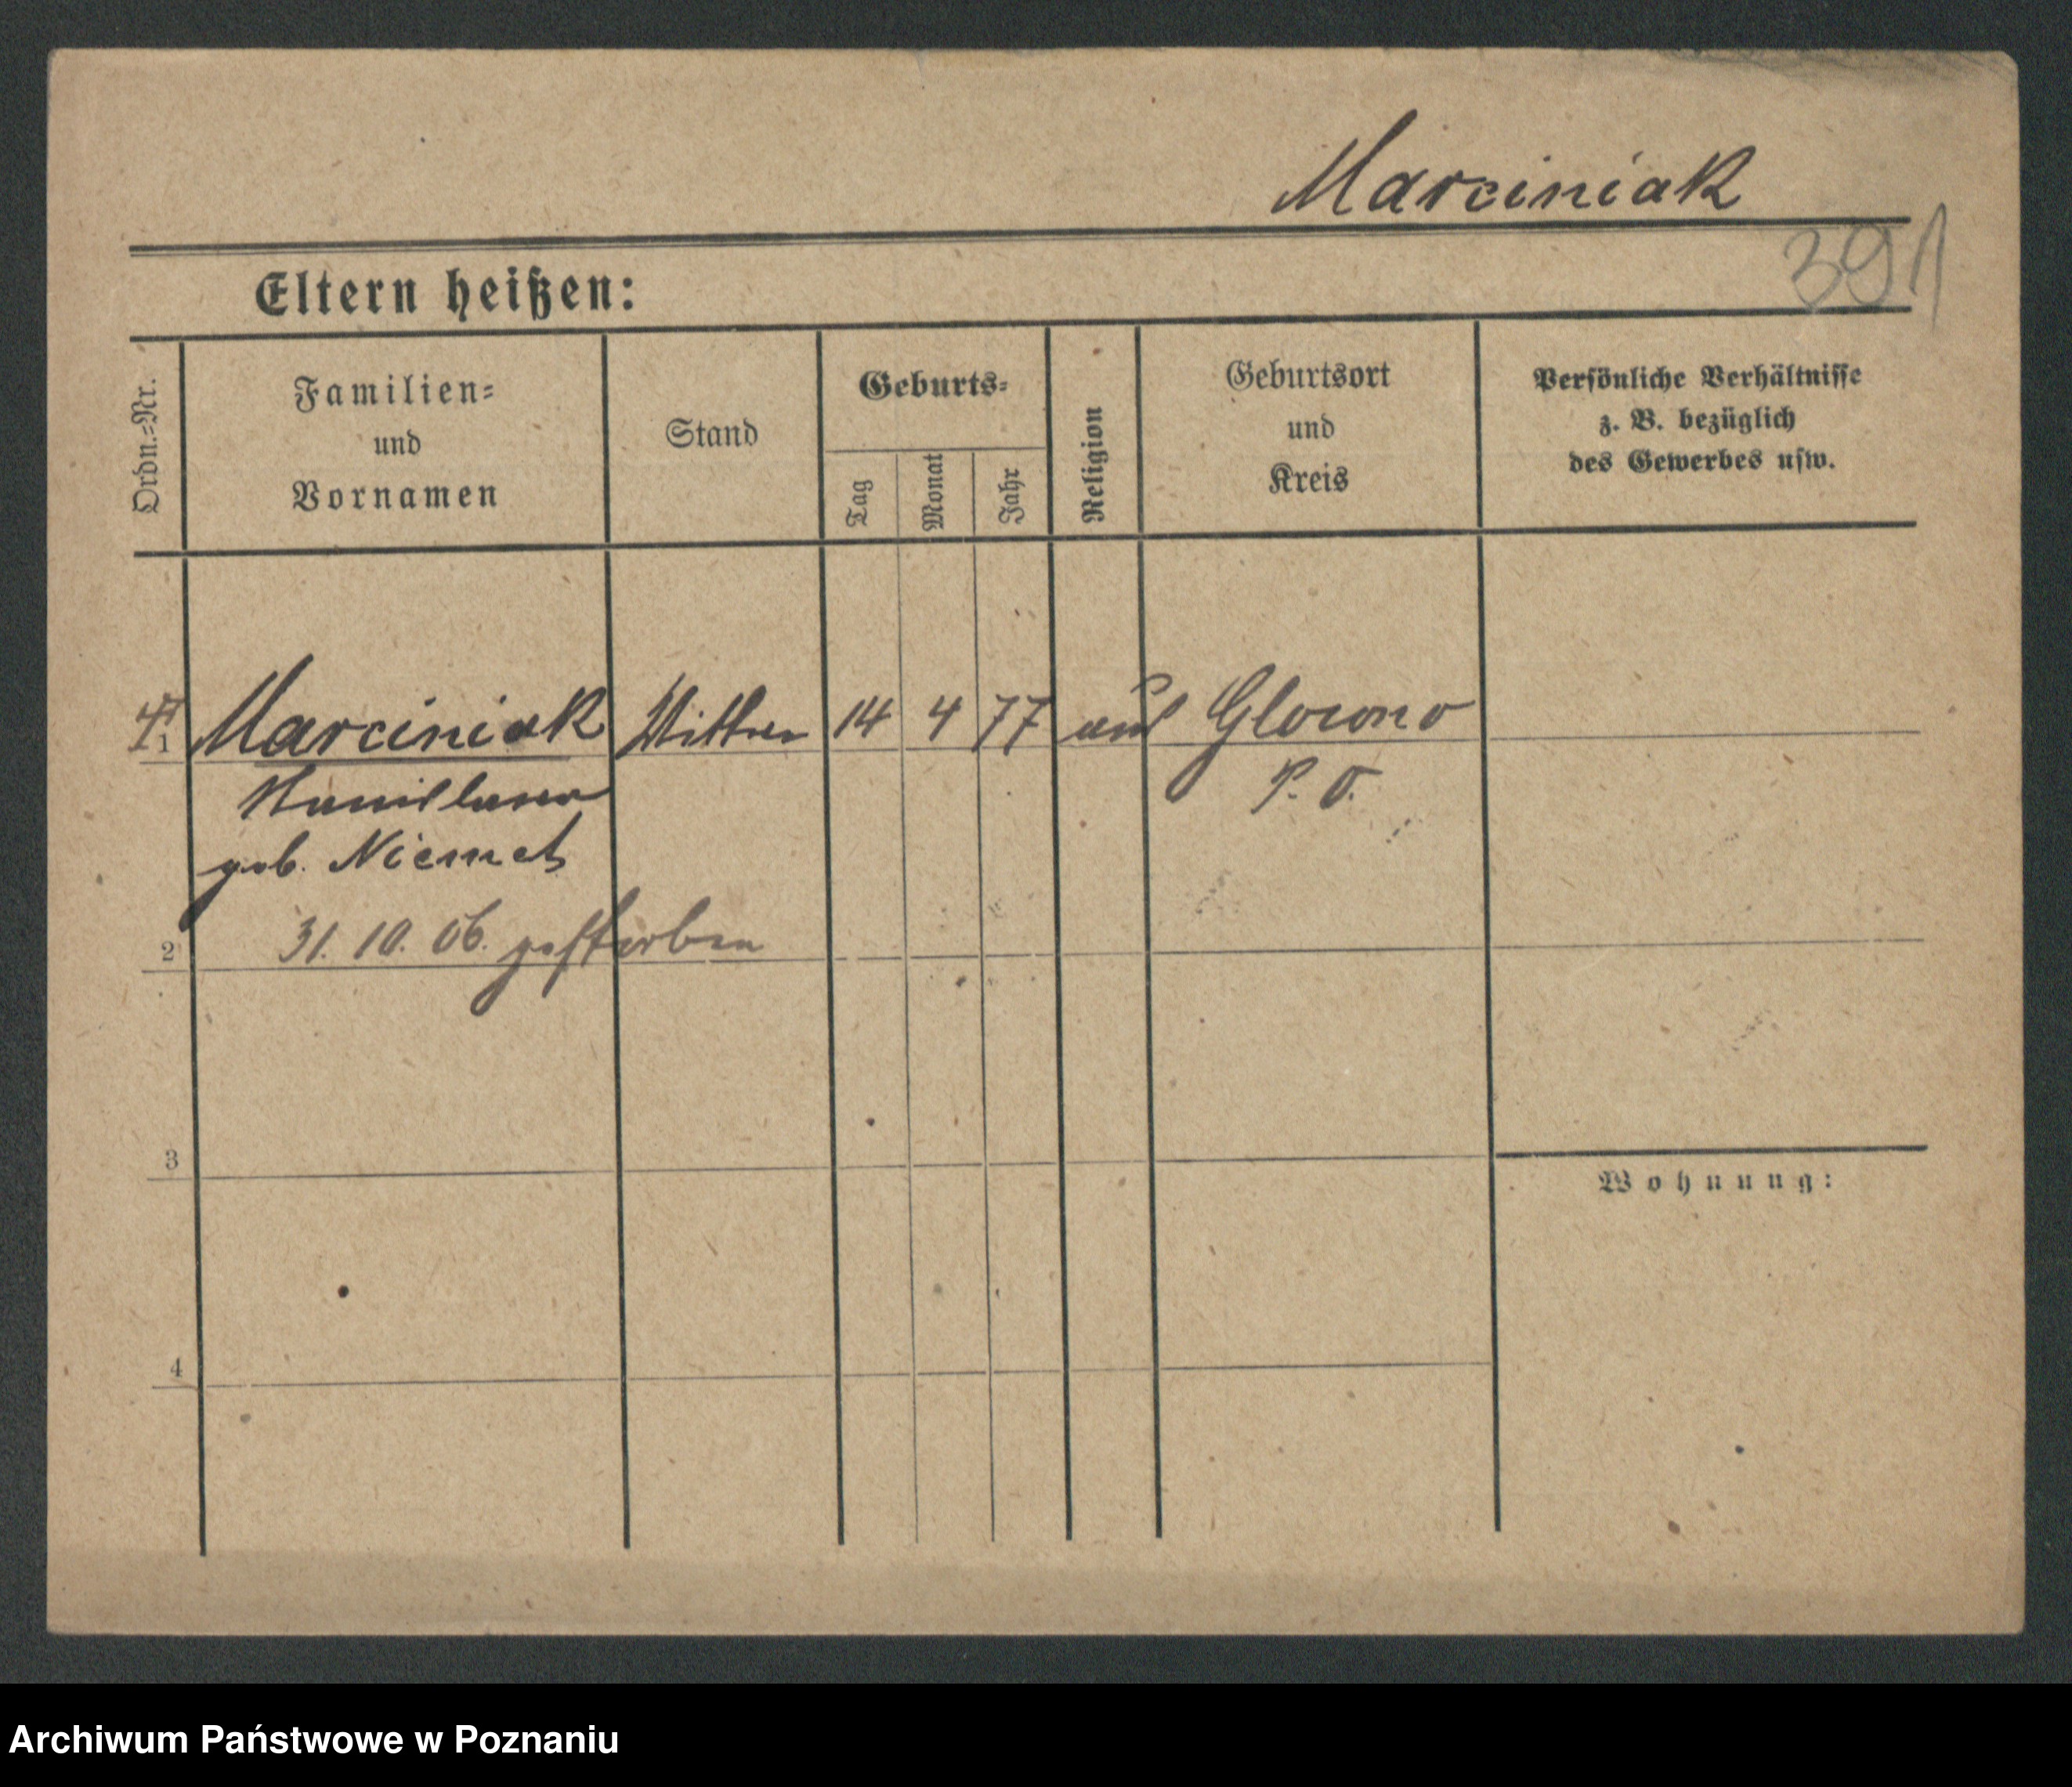 Marciniak
391
Eltern heißen:
Ordn.=Nr.
Familien=
und
Vornamen
Stand
Geburts=
Tag
Monat
Jahr
Religion
Geburtsort
und
Kreis
Persönliche Verhältnisse
z. B. bezüglich
des Gewerbes usw.
1 Marciniak 14 4 77 Glowno
P. O.
geb.
2 31. 10. 06. gestorben
3
Wohnung:
4
Archiwum Państwowe w Poznaniu